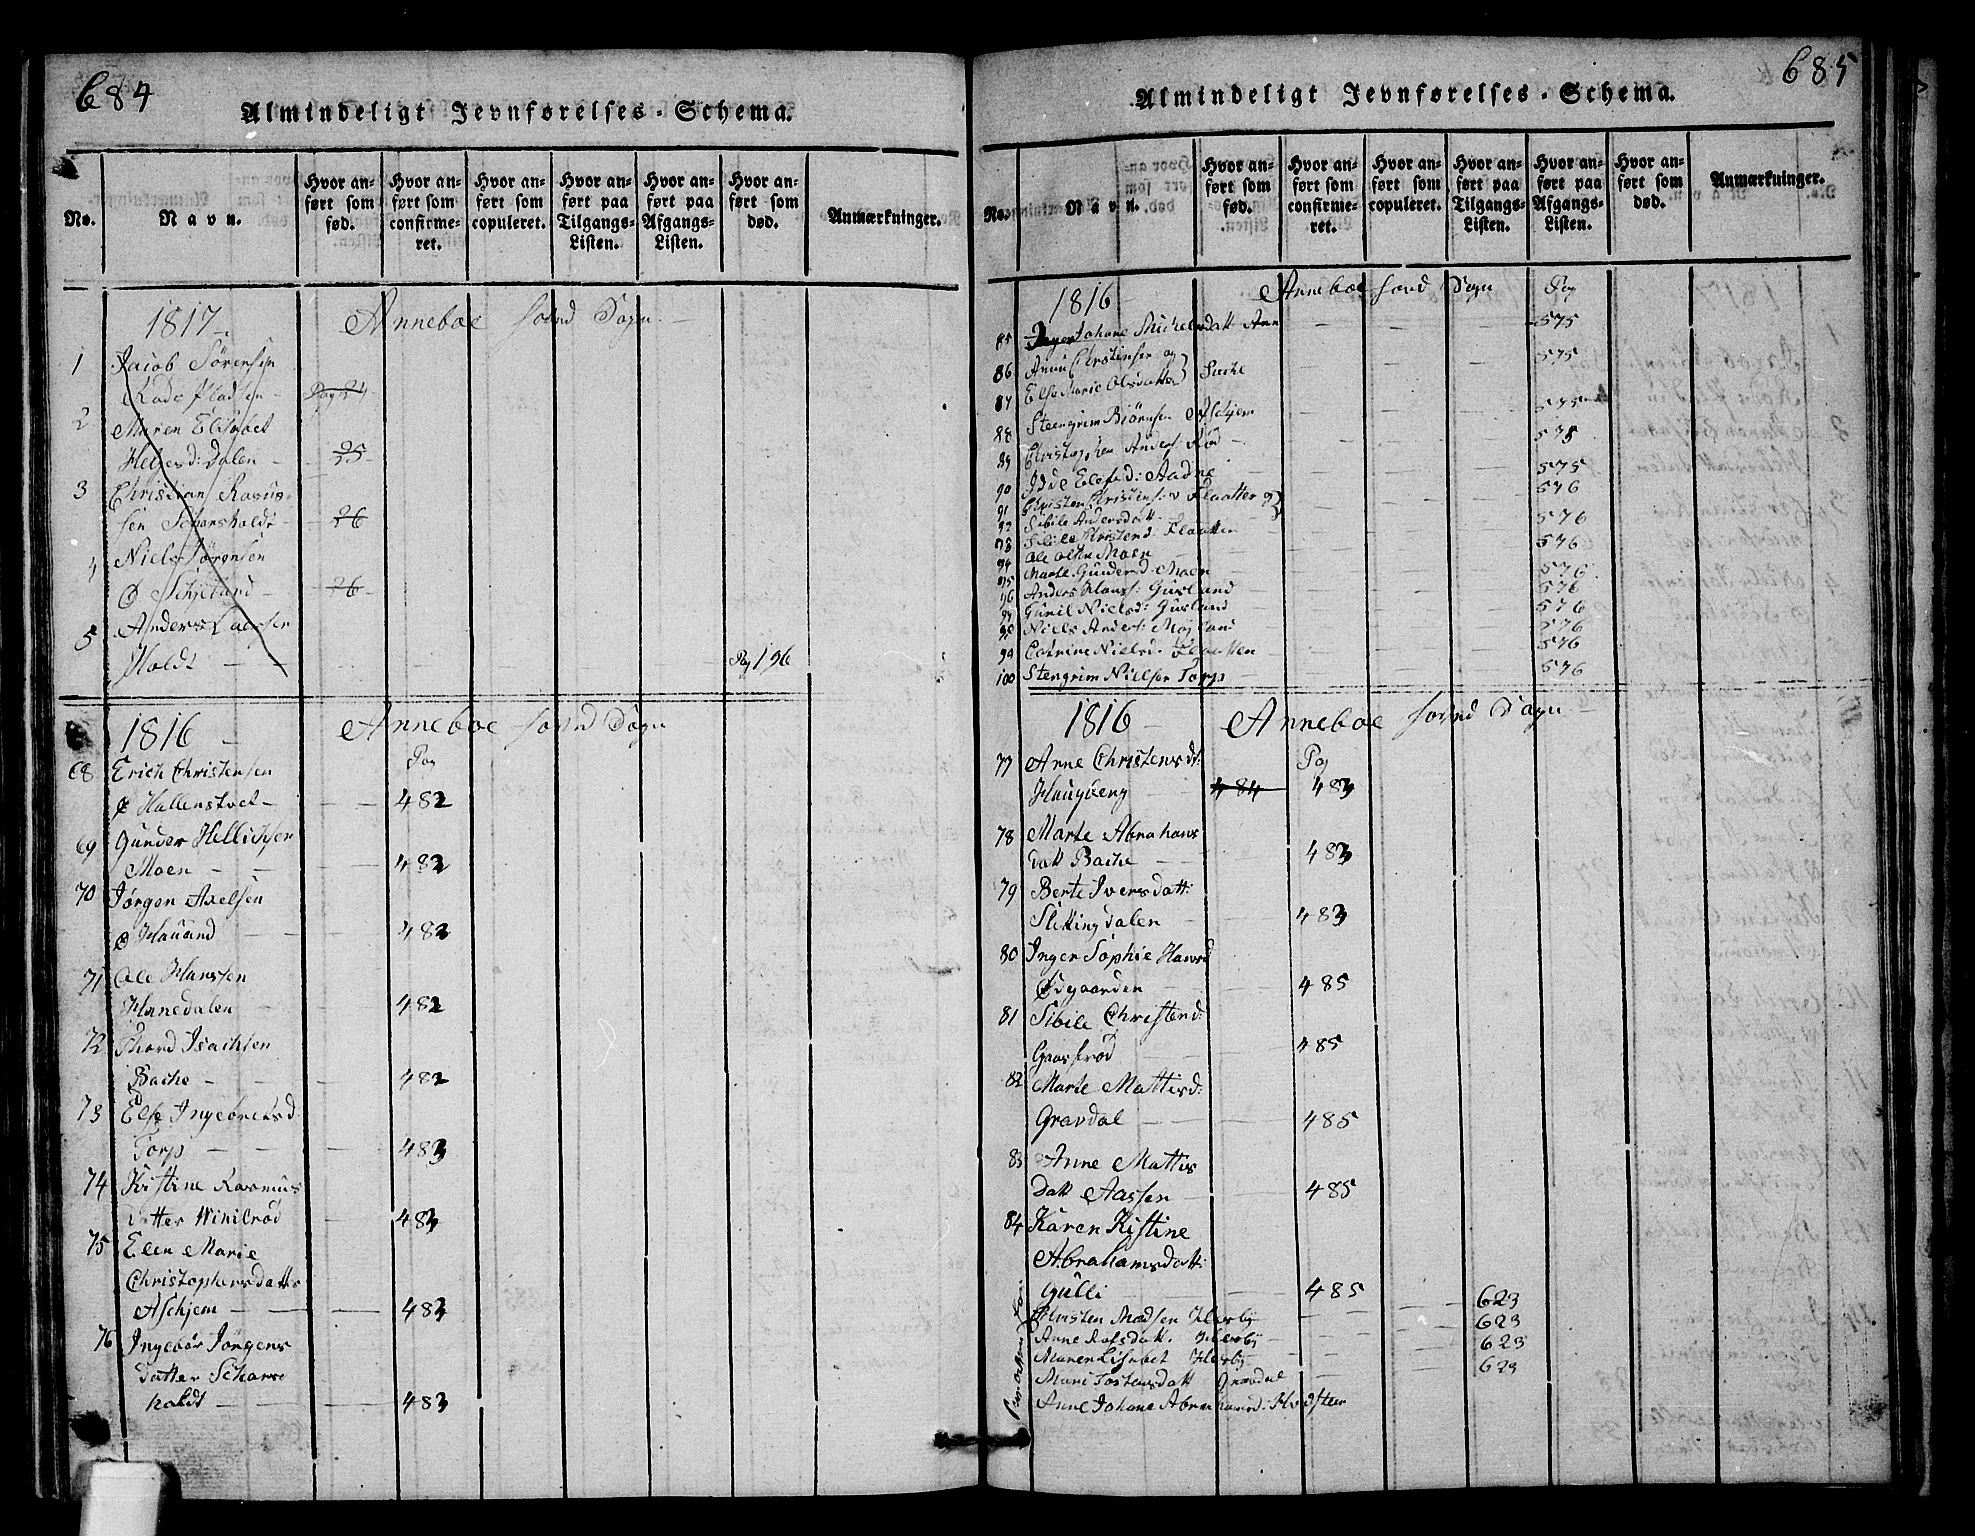 684
Almindeligt Jevnførelses-Schema.
No.
Navn.
Hvor anført som fød.
Hvor anført som confirmeret.
Hvor anført som copuleret.
Hvor anført paa Tilgangs-Listen.
Hvor anført paa Afgangs-Listen.
Hvor anført som død.
Anmærkninger.
1817 Anneboe Sogn
1 Jacob Sørensen
Pladsen Pag 24
2 Maren Elisabet
Heljesd: Dalen 25
3 Christian Rasmus-
sen Scharsholdt 26
4 Niels Sørensen
Schjelland 26
5 Anders Larsen
Holdt Pag 196
1816 Anneboe Sogn
68 Erich Christensen Pag
Hallenstvet 482
69 Gunder Hellichsen
Moen 482
70 Jørgen Axelsen
Hauand 482
71 Ole Hanssen
Hanedalen 482
72 Thord Isachsen
Bache 482
73 Else Ingebretsd:
Torp 483
74 Kistine Rasmus
datter Winilrød 483
75 Elen Marie
Christophersdatter
Aschjem 483
76 Ingebor Jørgens
datter Schars
holdt 483
685
Almindeligt Jevnførelses-Schema.
No.
Navn.
Hvor anført som fød.
Hvor anført som confirmeret.
Hvor anført som copuleret.
Hvor anført paa Tilgangs-Listen.
Hvor anført paa Afgangs-Listen.
Hvor anført som død.
Anmærkninger.
1816 Anneboe Sogn Pag
85 Johane Michelsdatt: 575
86 Anne Christensen og 575
87 Else Marie Olsdatter Bache
Steengrim Biørnsen Aschjem 575
88 Christopher Anders: Rød 575
89 Idde Elefsd: Aadne 575
90 Christen Christens: Flaatten og 576
91 Sibile Andersdatt
92 Sibile Christend: Flaatten 576
93 Ole Olsen Moen 576
94 Marte Gunders d: Moen 576
95 Anders Hans: Gusland 576
96 Gunil Nielsd: Gusland 576
Niels Anders: Møjland 576
99 Catrine Nielsd: Flaatten 576
100 Stengrim Nielsen Torp 576
1816 Anneboe Sogn
77 Anne Christensdt: Pag
Haugberg 484 483
78 Marte Abrahams
datt Bache 483
79 Berte Iversdatt:
Slettingdalen 483
80 Inger Sophie Hansd
Ødgaarden 485
81 Sibile Christend:
Gaasserød 485
82 Marte Mattisd:
Gravdal 485
83 Anne Mattis
datt Aassen 485
84 Karen Kistine
Abrahamsdatt:
Gulli 485
Christen Madsen Hesby 623
Anne Rolfsdatt. Hesby 623
Maren Lisabet Hesby 623
Mari Tostensdatt Gravdal 623
Anne Johane Abrahamsd: Hvidsteen